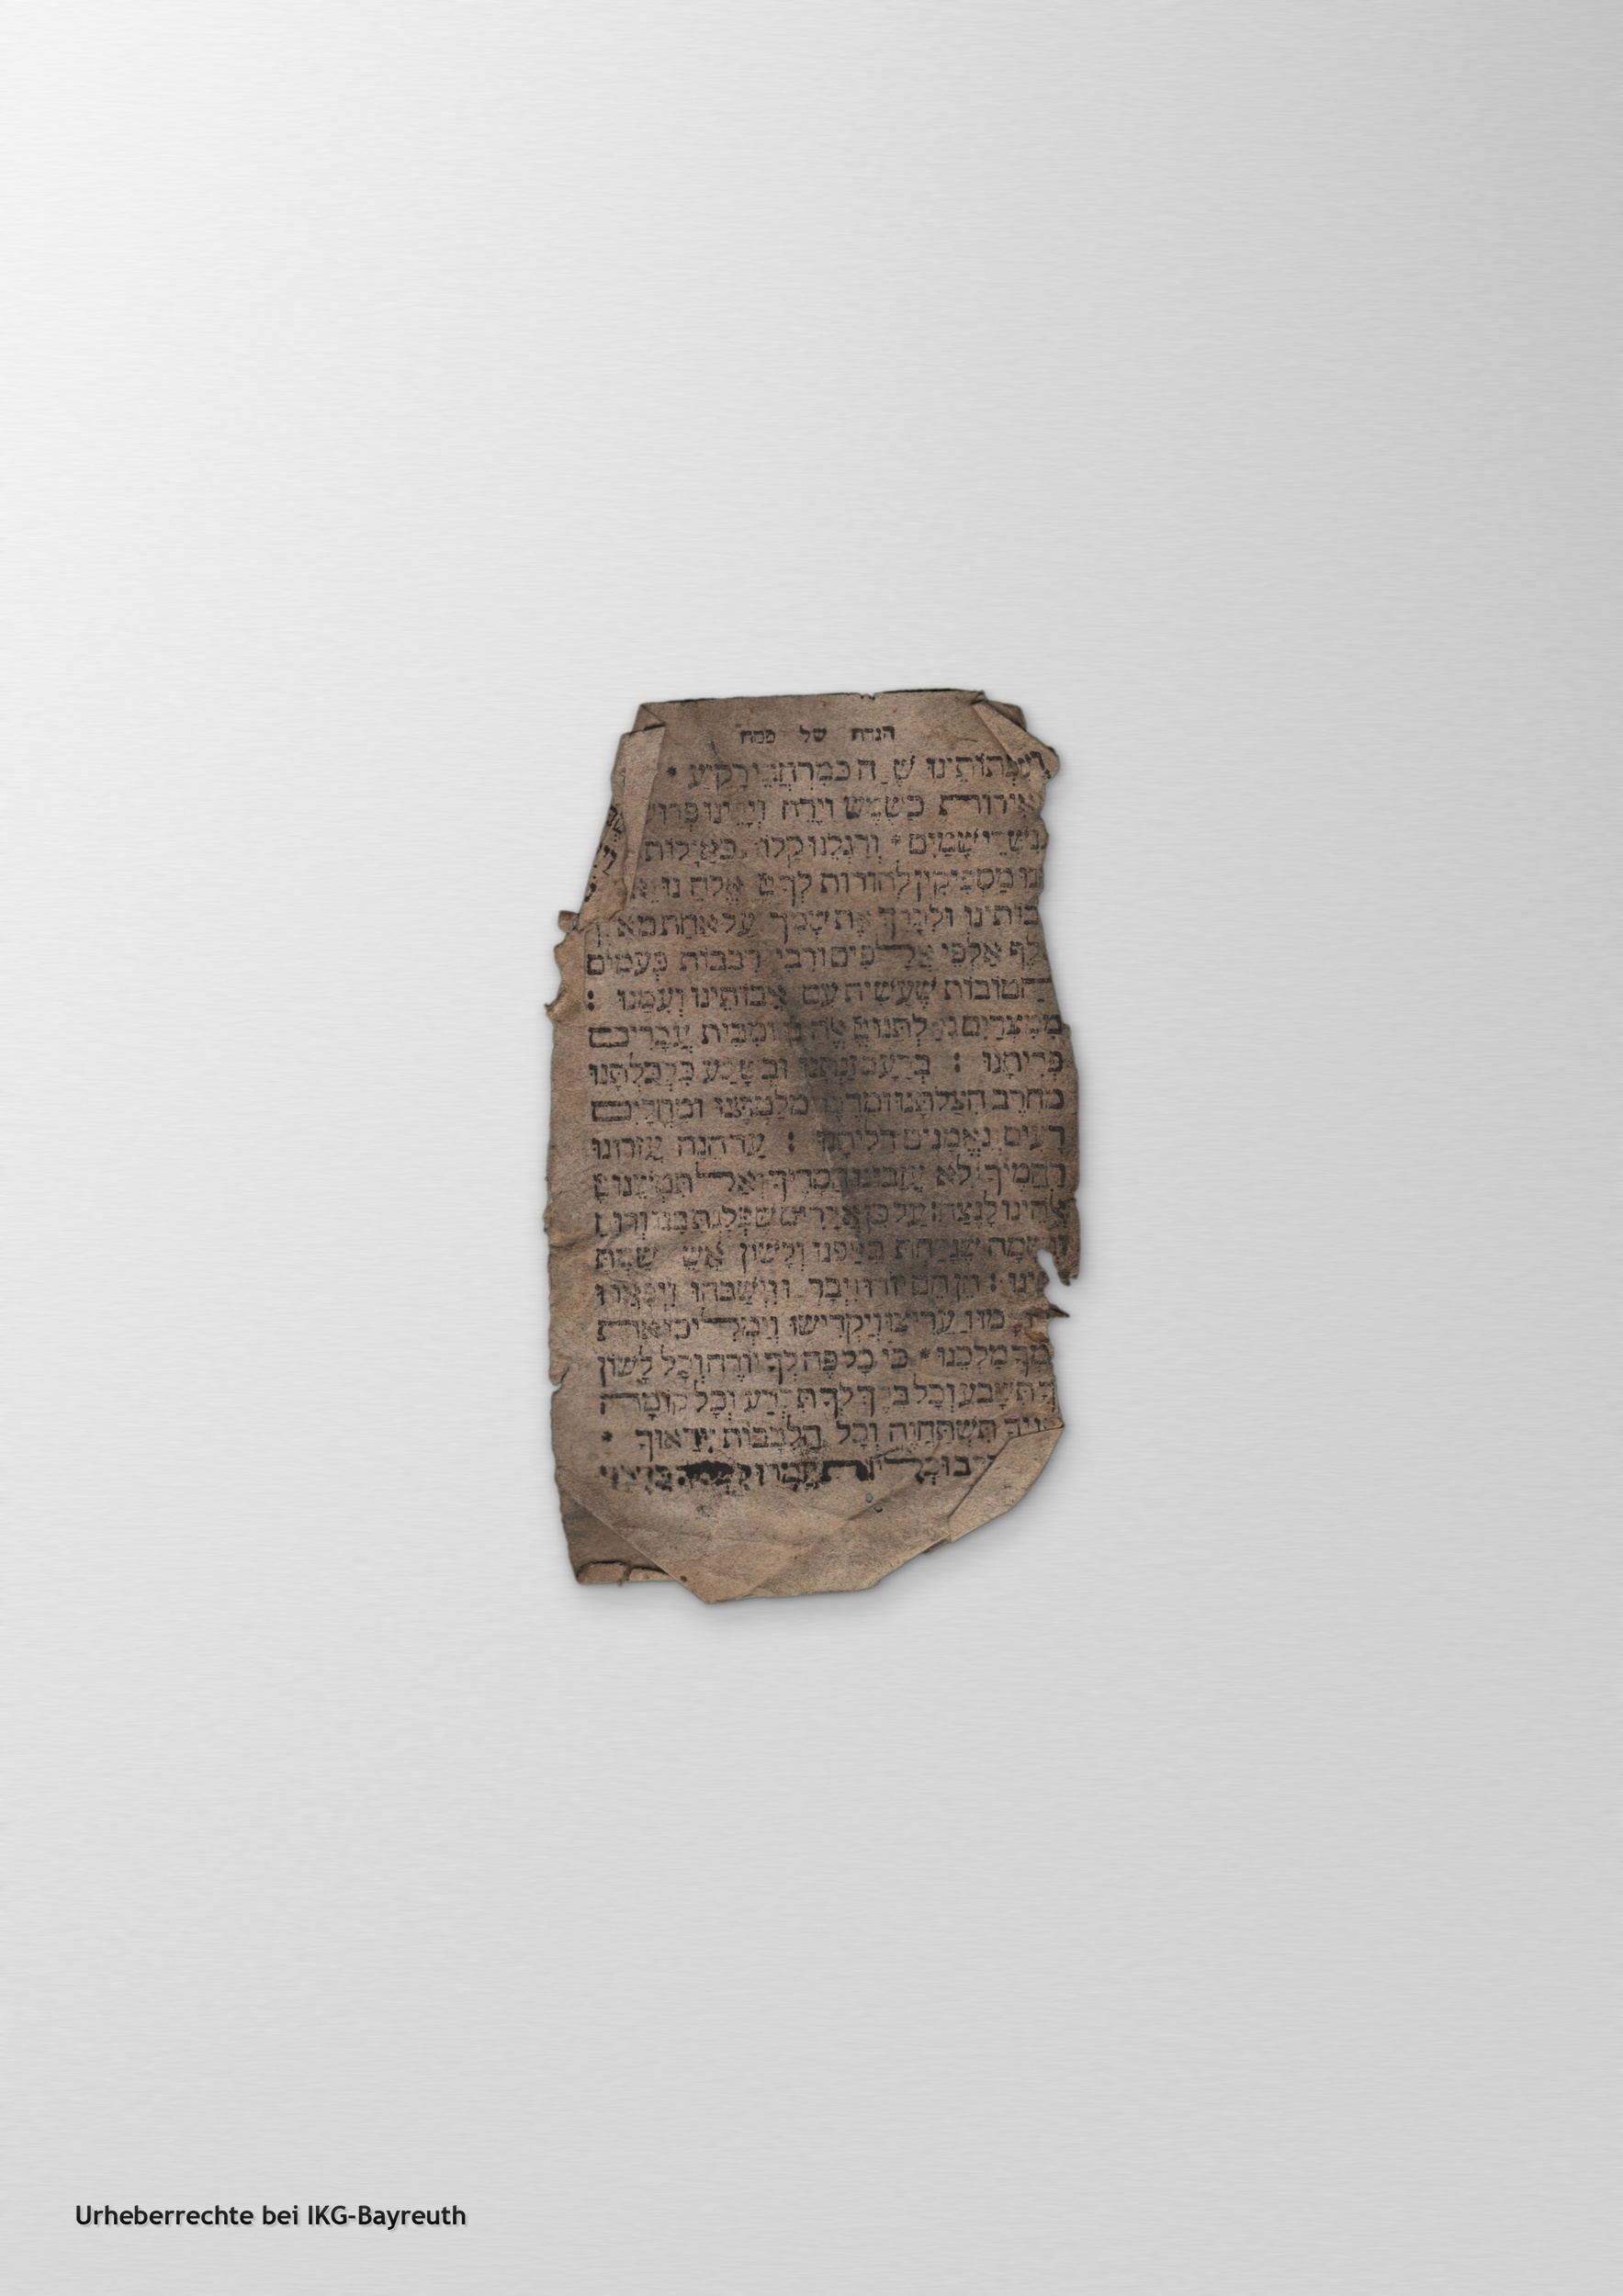 הגדה של פסח
ושפתותינו שבח כמרחבי רקיע
מאירות כשמש וירח וידינו פרו
כנשרי שמים ורגלנו קלות כאילות
אנו מספיקין להודות לך אלהינו
אבותינו ולברך את שמך על אחת מא
אלף אלפי אלפים ורבי רבבות פעמים
הטובות שעשית עם אבותינו ועמנו :
ממצרים גאלתנו אלהינו ומבית עבדים
פדיתנו : ברעב זנתנו ובשבע כלכלתנו
מחרב הצלתנו ומדבר מלטתנו ומחלים
רעים נאמנים דליתנו : עד הנה עזרונו
רחמיך לא עזבונו חסדיך ואל תטשנו
אלהינו לנצח על כן אברים שפלגת בנו ורוח
ונשמה שנפחת באפנו ולשון אשר שמת
בפינו : הן הם יודו ויברכו וישבחו ויפארו
וירוממו ויעריצו ויקדישו וימליכו את
שמך מלכנו כי כל פה לך יודה וכל לשון
לך תשבע וכל ברך לך תכרע וכל קומה
לפניך תשתחוה וכל הלבבות יראוך
Urheberrechte bei IKG-Bayreuth